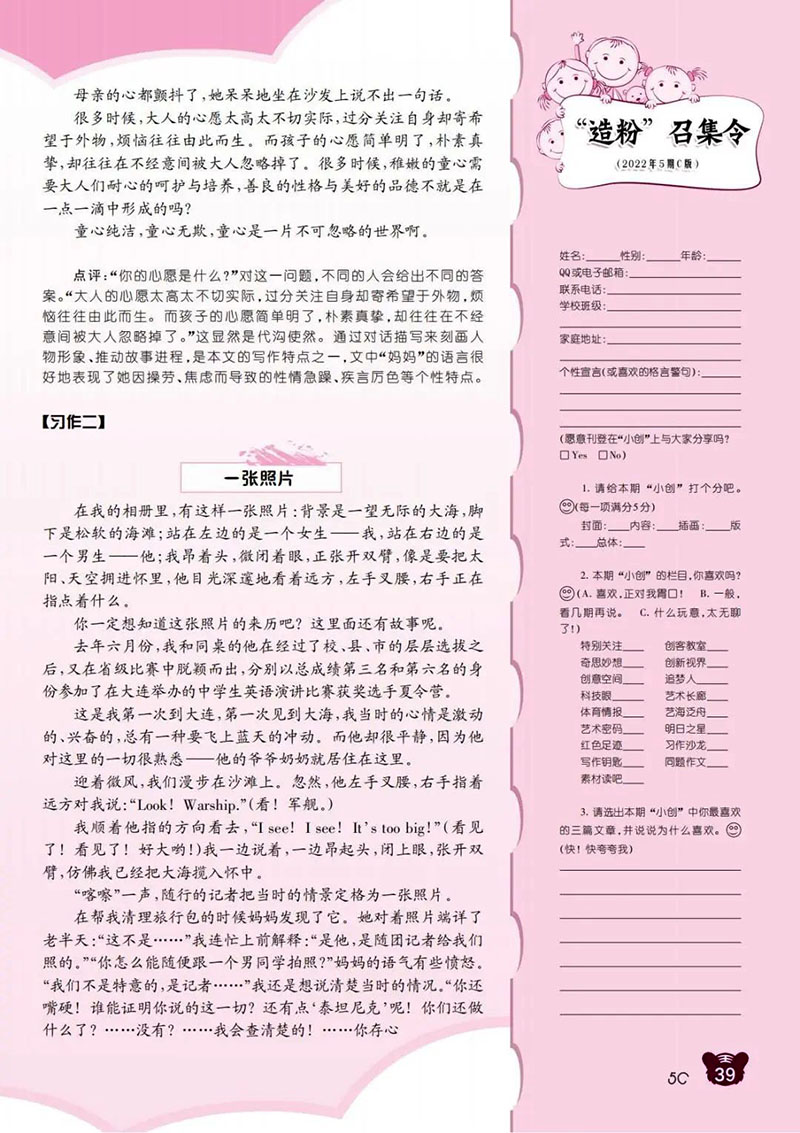 母亲的心都颤抖了，她呆呆地坐在沙发上说不出一句话。
很多时候，大人的心愿太高太不切实际，过分关注自身却寄希
望于外物，烦恼往往由此而生。而孩子的心愿简单明了，朴素真
挚，却往往在不经意间被大人忽略掉了。很多时候，稚嫩的童心需
要大人们耐心的呵护与培养，善良的性格与美好的品德不就是在
一点一滴中形成的吗？
童心纯洁，童心无欺，童心是一片不可忽略的世界啊。
点评：“你的心愿是什么？”对这一问题，不同的人会给出不同的答
案。“大人的心愿太高太不切实际，过分关注自身却寄希望于外物，烦
恼往往由此而生。而孩子的心愿简单明了，朴素真挚，却往往在不经
意间被大人忽略掉了。”这显然是代沟使然。通过对话描写来刻画人
物形象、推动故事进程，是本文的写作特点之一，文中“妈妈”的语言很
好地表现了她因操劳、焦虑而导致的性情急躁、疾言厉色等个性特点。
【习作二】
一张照片
在我的相册里，有这样一张照片：背景是一望无际的大海，脚
下是松软的海滩；站在左边的是一个女生——我，站在右边的是
一个男生——他；我昂着头，微闭着眼，正张开双臂，像是要把太
阳、天空拥进怀里，他目光深邃地看着远方，左手叉腰，右手正在
指点着什么。
你一定想知道这张照片的来历吧？这里面还有故事呢。
去年六月份，我和同桌的他在经过了校、县、市的层层选拔之
后，又在省级比赛中脱颖而出，分别以总成绩第三名和第六名的身
份参加了在大连举办的中学生英语演讲比赛获奖选手夏令营。
这是我第一次到大连，第一次见到大海，我当时的心情是激动
的、兴奋的，总有一种要飞上蓝天的冲动。而他却很平静，因为他
对这里的一切很熟悉——他的爷爷奶奶就居住在这里。
迎着微风，我们漫步在沙滩上。忽然，他左手叉腰，右手指着
远方对我说：“Look！Warship.”（看！军舰。）
我顺着他指的方向看去，“I see！I see！It’s too big！”（看见
了！看见了！好大哟！）我一边说着，一边昂起头，闭上眼，张开双
臂，仿佛我已经把大海揽入怀中。
“喀嚓”一声，随行的记者把当时的情景定格为一张照片。
在帮我清理旅行包的时候妈妈发现了它。她对着照片端详了
老半天：“这不是……”我连忙上前解释：“是他，是随团记者给我们
照的。”“你怎么能随便跟一个男同学拍照？”妈妈的语气有些愤怒。
“我们不是特意的，是记者……”我还是想说清楚当时的情况。“你还
嘴硬！谁能证明你说的这一切？还有点‘泰坦尼克’呢！你们还做
什么了？……没有？……我会查清楚的！……你存心
“造粉”召集令
（2022年5期C版）
姓名：_____性别：_____年龄：_____
QQ或电子邮箱：_____
联系电话：_____
学校班级：_____
家庭地址：_____
个性宣言（或喜欢的格言警句）：_____
（愿意刊登在“小创”上与大家分享吗？
□Yes □No）
1. 请给本期“小创”打个分吧。
（每一项满分5分）
封面：___内容：___插画：___版
式：___总体：___
2. 本期“小创”的栏目，你喜欢吗？
（A. 喜欢，正对我胃口！ B. 一般，
看几期再说。 C. 什么玩意，太无聊
了！）
特别关注___ 创客教室___
奇思妙想___ 创新视界___
创意空间___ 追梦人___
科技眼___ 艺术长廊___
体育情报___ 艺海泛舟___
艺术密码___ 明日之星___
红色足迹___ 习作沙龙___
写作钥匙___ 同题作文___
素材读吧___
3. 请选出本期“小创”中你最喜欢
的三篇文章，并说说为什么喜欢。
（快！快夸夸我）
5C 39